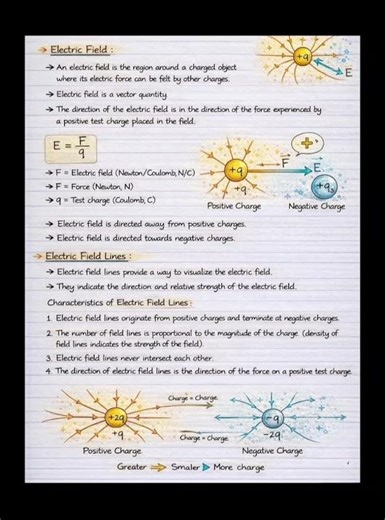 → Electric Field :
→ An electric field is the region around a charged object
where its electric force can be felt by other charges.
+q
E
→ Electric field is a vector quantity
→ The direction of the electric field is in the direction of the force experienced by
a positive test charge placed in the field.
E = F/q
→ F = Electric field (Newton/Coulomb, N/C)
→ F = Force (Newton, N)
→ q = Test charge (Coulomb, C)
+
+q
F
E
+q
Positive Charge
Negative Charge
→ Electric field is directed away from positive charges.
→ Electric field is directed towards negative charges.
→ Electric Field Lines :
→ Electric field lines provide a way to visualize the electric field.
→ They indicate the direction and relative strength of the electric field.
Characteristics of Electric Field Lines :
1. Electric field lines originate from positive charges and terminate at negative charges.
2. The number of field lines is proportional to the magnitude of the charge. (density of
field lines indicates the strength of the field).
3. Electric field lines never intersect each other.
4. The direction of electric field lines is the direction of the force on a positive test charge.
+2q
+q
Charge = Charge
Charge = Charge
-q
-2q
Positive Charge
Negative Charge
Greater ⇒ Smaler ➤ More charge